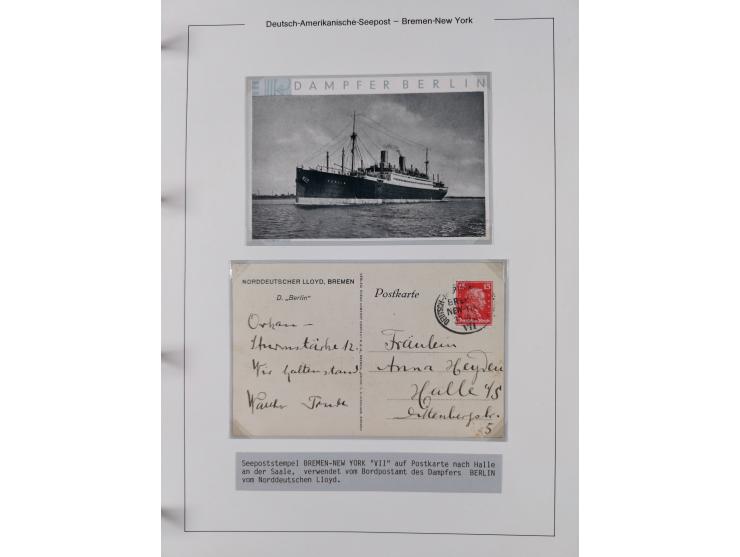 Deutsch-Amerikanische-Seepost – Bremen-New York
DAMPFER BERLIN
NORDDEUTSCHER LLOYD, BREMEN
D. „Berlin"
Postkarte
15
VII
Orkan –
Sturmstärke 12.
Wir halten stand
Fräulein
Anna Heyden
Halle a/S
5
Seepoststempel BREMEN-NEW YORK "VII" auf Postkarte nach Halle
an der Saale, verwendet vom Bordpostamt des Dampfers BERLIN
vom Norddeutschen Lloyd.